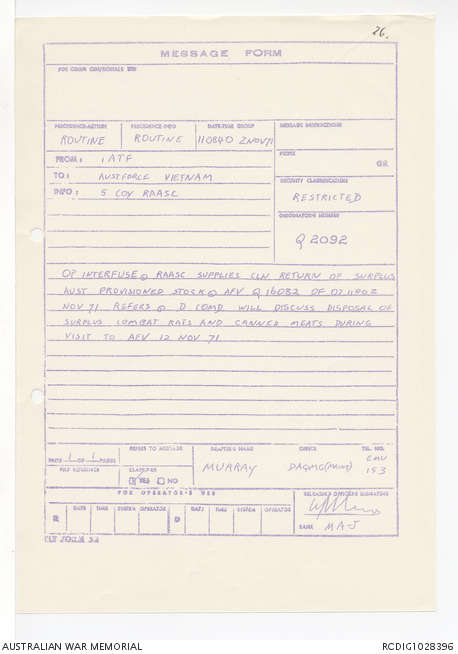 26.
MESSAGE FORM
FOR COMM CEN/SIGNALS USE
PRECEDENCE-ACTION
PRECEDENCE-INFO
DATE-TIME GROUP
MESSAGE INSTRUCTIONS
ROUTINE
ROUTINE
110840 ZNOV71
PREFIX
GR
FROM: 1 ATF
TO: AUSTFORCE VIETNAM
SECURITY CLASSIFICATION
INFO: 5 COY RAASC
RESTRICTED
ORIGINATORS NUMBER
Q 2092
OP INTERFUSE RAASC SUPPLIES CLN RETURN OF SURPLUS
AUST PROVISIONED STOCK AFV Q16082 OF
NOV 71 REFERS D COMD WILL DISCUSS DISPOSAL OF
SURPLUS COMBAT RATS AND CANNED MEATS DURING
VISIT TO AFV 12 NOV 71
PAGE 1 OF 1 PAGES
REFERS TO MESSAGE
DRAFTERS NAME
OFFICE
TEL NO.
FILE REFERENCE
CLASSIFIED
YES NO
MURRAY
DAQMG(MAINT)
EMU
153
FOR OPERATOR'S USE
RELEASING OFFICERS SIGNATURE
R DATE TIME SYSTEM OPERATOR D DATE TIME SYSTEM OPERATOR
RANK MAJ
AUSTRALIAN WAR MEMORIAL
RCDIG1028396